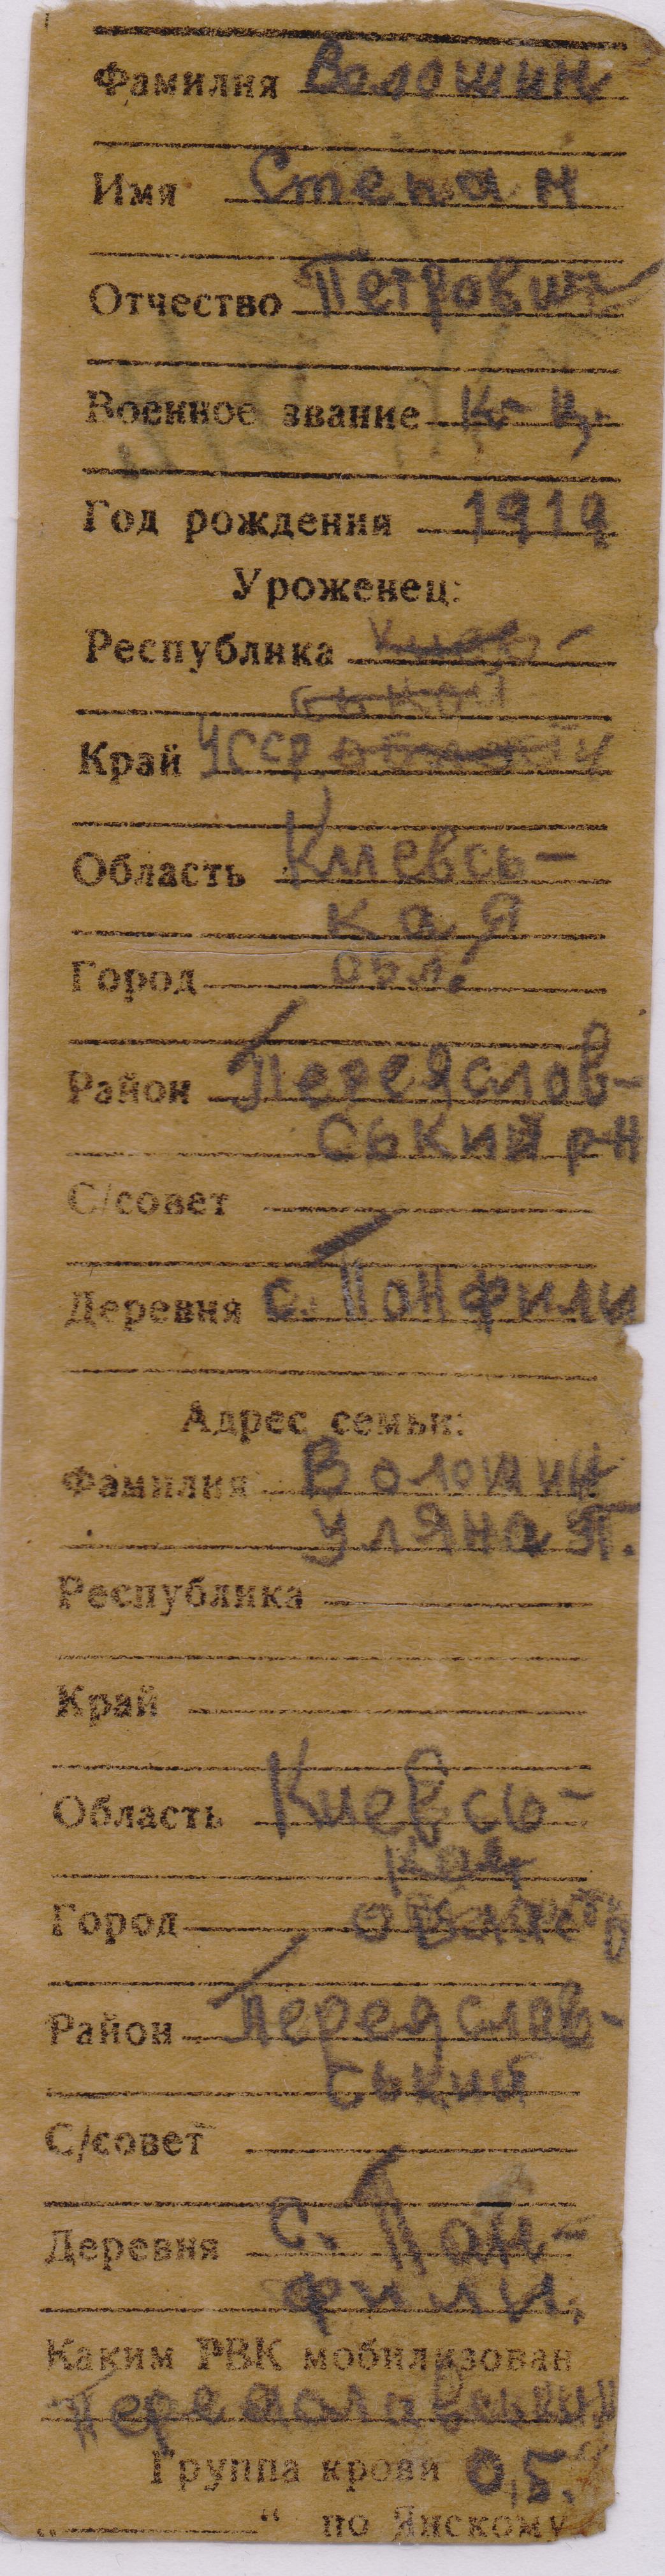 Фамилия Волошин
Имя Степан
Отчество Петрович
Военное звание к-ц,
Год рождения 1919
Уроженец:
Республика Киев-
ськой
Край УССР области
Область Киевсь-
кая
Город обл.
Район Переяслов-
ський р-н
С/совет
Деревня с. Понфили
Адрес семьи:
Фамилия Волошин
Уляна П.
Республика
Край
Область Киевсь-
кая
Город область
Район Переяслов-
ський
С/совет
Деревня с. Пон-
фили,
Каким РВК мобилизован
Переаславський
Группа крови 0,5.
„ “ по Янскому